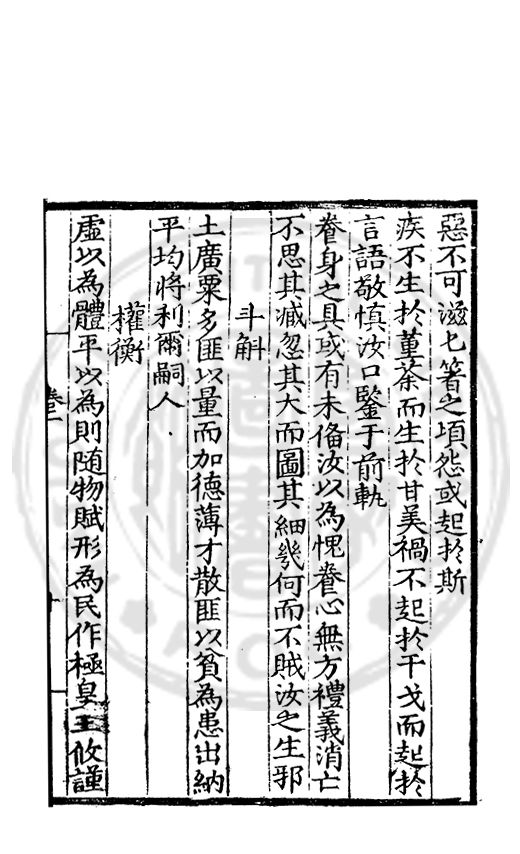 惡不可滋匕箸之頃怨或起扵斯
疾不生扵菫荼而生扵甘美禍不起扵干戈而起扵
言語敬慎汝口鑒于前軌
養身之具或有未俻汝以為愧養心無方禮義消亡
不思其臧忽其大而圖其細幾何而不賊汝之生邪
斗斛
土廣粟多匪以量而加德薄才散匪以貧為患出納
平均將利爾嗣人
權衡
虛以為體平以為則随物賦形為民作極皇王攸謹
卷二
十